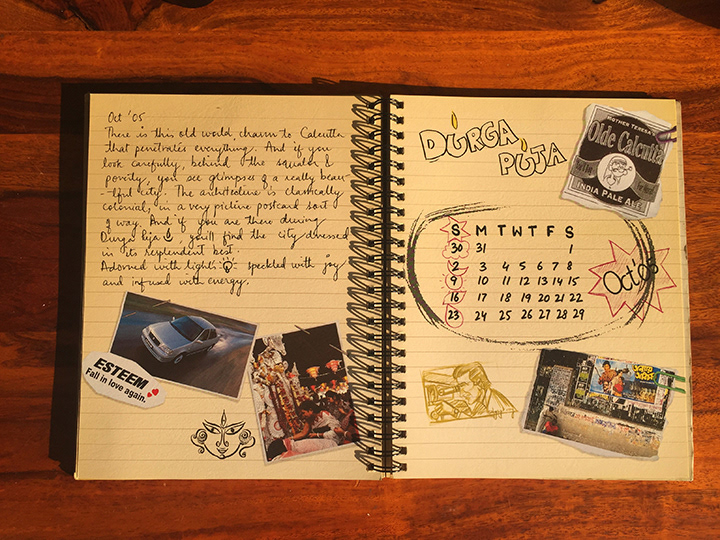 Oct '05
There is this old world, charm to Calcutta
that penetrates everything. And if you
look carefully, behind the squalor &
poverty, you see glimpses of a really beau
-tiful city. The architecture is classically
colonial, in a very picture postcard sort
of way. And if you are there during
Durga Puja, you'll find the city dressed
in its resplendent best.
Adorned with lights, speckled with joy
and infused with energy.
ESTEEM
Fall in love again.
DURGA
PUJA
MOTHER TERESA'S
Olde Calcutta
INDIA PALE ALE
S M T W T F S
30 31 1
2 3 4 5 6 7 8
9 10 11 12 13 14 15
16 17 18 19 20 21 22
23 24 25 26 27 28 29
Oct'05